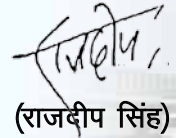 राजदीप
(राजदीप सिंह)